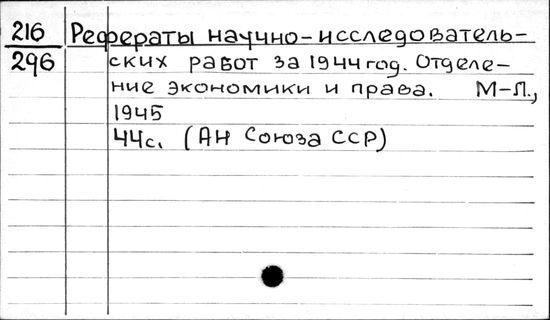 216 Рефераты научно-исследователь-
296 ских работ за 1944 год. Отделе-
ние экономики и права. М-Л.,
1945
44с. (АН Союза ССР)